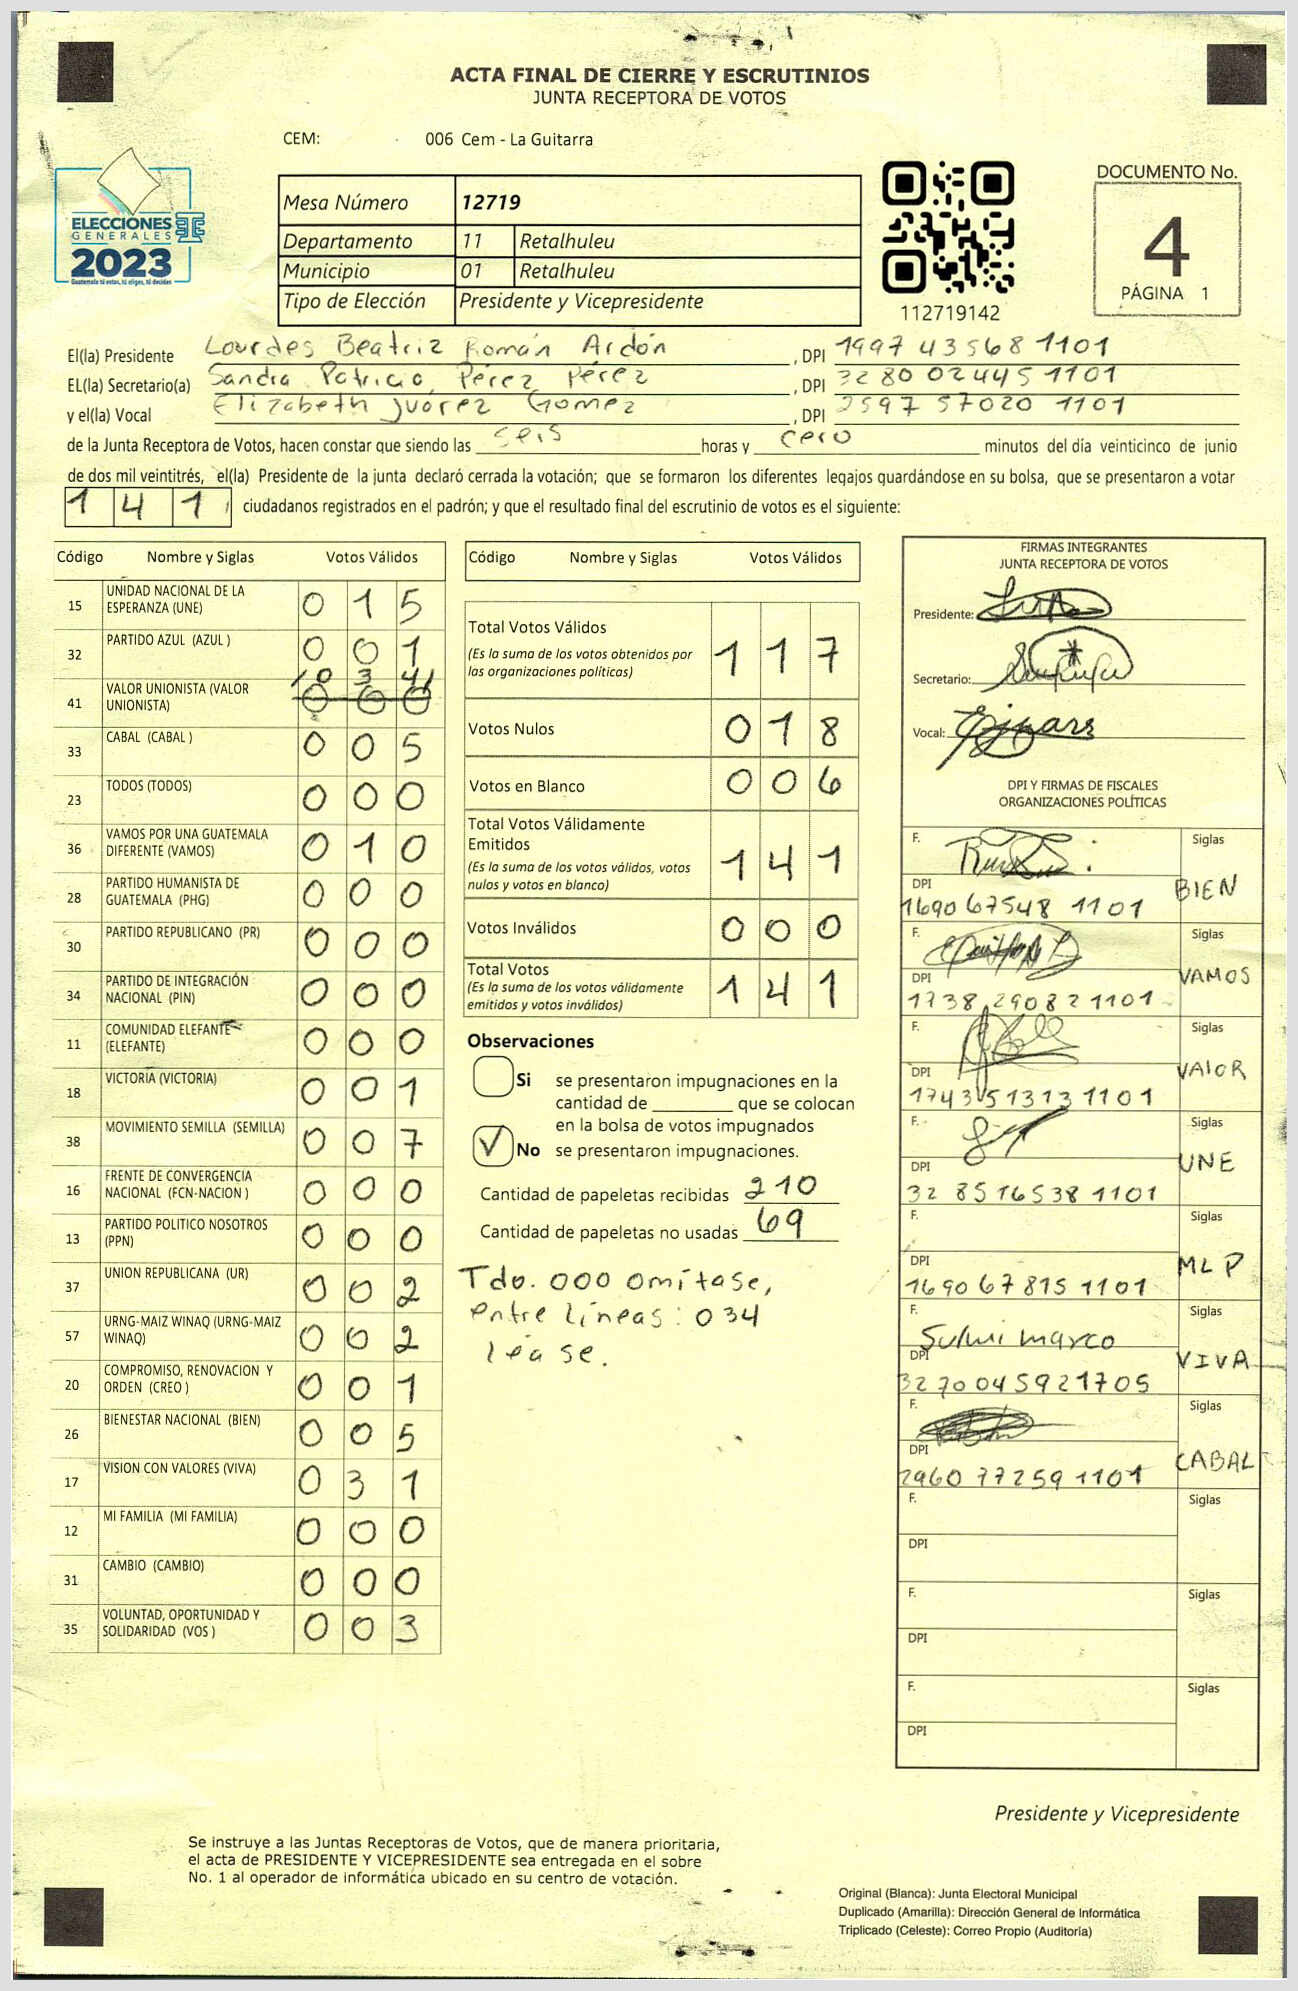 ACTA FINAL DE CIERRE Y ESCRUTINIOS
JUNTA RECEPTORA DE VOTOS
CEM: 006 Cem - La Guitarra
ELECCIONES
GENERALES
2023
Guatemala tú votas, tú eliges, tú decides
Mesa Número 12719
Departamento 11 Retalhuleu
Municipio 01 Retalhuleu
Tipo de Elección Presidente y Vicepresidente
112719142
DOCUMENTO No.
4
PÁGINA 1
El(la) Presidente Lourdes Beatriz Román Ardón, DPI 1997 43568 1101
EL(la) Secretario(a) Sandra Patricia Pérez Pérez, DPI 3280 02445 1101
y el(la) Vocal Elizabeth Juárez Gomez, DPI 2597 57020 1101
de la Junta Receptora de Votos, hacen constar que siendo las seis horas y cero minutos del día veinticinco de junio
de dos mil veintitrés, el(la) Presidente de la junta declaró cerrada la votación; que se formaron los diferentes legajos guardándose en su bolsa, que se presentaron a votar
1 4 1 ciudadanos registrados en el padrón; y que el resultado final del escrutinio de votos es el siguiente:
Código Nombre y Siglas Votos Válidos
15 UNIDAD NACIONAL DE LA ESPERANZA (UNE) 0 1 5
32 PARTIDO AZUL (AZUL ) 0 0 1
0 3 4
41 VALOR UNIONISTA (VALOR UNIONISTA) 0 0 0
33 CABAL (CABAL ) 0 0 5
23 TODOS (TODOS) 0 0 0
36 VAMOS POR UNA GUATEMALA DIFERENTE (VAMOS) 0 1 0
28 PARTIDO HUMANISTA DE GUATEMALA (PHG) 0 0 0
30 PARTIDO REPUBLICANO (PR) 0 0 0
34 PARTIDO DE INTEGRACIÓN NACIONAL (PIN) 0 0 0
11 COMUNIDAD ELEFANTE (ELEFANTE) 0 0 0
18 VICTORIA (VICTORIA) 0 0 1
38 MOVIMIENTO SEMILLA (SEMILLA) 0 0 7
16 FRENTE DE CONVERGENCIA NACIONAL (FCN-NACION ) 0 0 0
13 PARTIDO POLITICO NOSOTROS (PPN) 0 0 0
37 UNION REPUBLICANA (UR) 0 0 2
57 URNG-MAIZ WINAQ (URNG-MAIZ WINAQ) 0 0 2
20 COMPROMISO, RENOVACION Y ORDEN (CREO ) 0 0 1
26 BIENESTAR NACIONAL (BIEN) 0 0 5
17 VISION CON VALORES (VIVA) 0 3 1
12 MI FAMILIA (MI FAMILIA) 0 0 0
31 CAMBIO (CAMBIO) 0 0 0
35 VOLUNTAD, OPORTUNIDAD Y SOLIDARIDAD (VOS ) 0 0 3
Código Nombre y Siglas Votos Válidos
Total Votos Válidos 1 1 7
(Es la suma de los votos obtenidos por
las organizaciones políticas)
Votos Nulos 0 1 8
Votos en Blanco 0 0 6
Total Votos Válidamente
Emitidos 1 4 1
(Es la suma de los votos válidos, votos
nulos y votos en blanco)
Votos Inválidos 0 0 0
Total Votos 1 4 1
(Es la suma de los votos válidamente
emitidos y votos inválidos)
Observaciones
Si se presentaron impugnaciones en la
cantidad de ________ que se colocan
en la bolsa de votos impugnados
No se presentaron impugnaciones.
Cantidad de papeletas recibidas 210
Cantidad de papeletas no usadas 69
Tdo. 000 omítase,
entre líneas: 034
léase.
FIRMAS INTEGRANTES
JUNTA RECEPTORA DE VOTOS
Presidente:
Secretario:
Vocal:
DPI Y FIRMAS DE FISCALES
ORGANIZACIONES POLÍTICAS
F. Siglas
DPI BIEN
1690 67548 1101
F. Siglas
DPI VAMOS
1738 29082 1101
F. Siglas
DPI VALOR
1743 51313 1101
F. Siglas
DPI UNE
32 85 16538 1101
F. Siglas
DPI MLP
1690 67815 1101
F. Siglas
Sulmi marco
DPI VIVA
3270045921705
F. Siglas
DPI CABAL
2960 77259 1101
F. Siglas
DPI
F. Siglas
DPI
F. Siglas
DPI
Presidente y Vicepresidente
Se instruye a las Juntas Receptoras de Votos, que de manera prioritaria,
el acta de PRESIDENTE Y VICEPRESIDENTE sea entregada en el sobre
No. 1 al operador de informática ubicado en su centro de votación.
Original (Blanca): Junta Electoral Municipal
Duplicado (Amarilla): Dirección General de Informática
Triplicado (Celeste): Correo Propio (Auditoría)